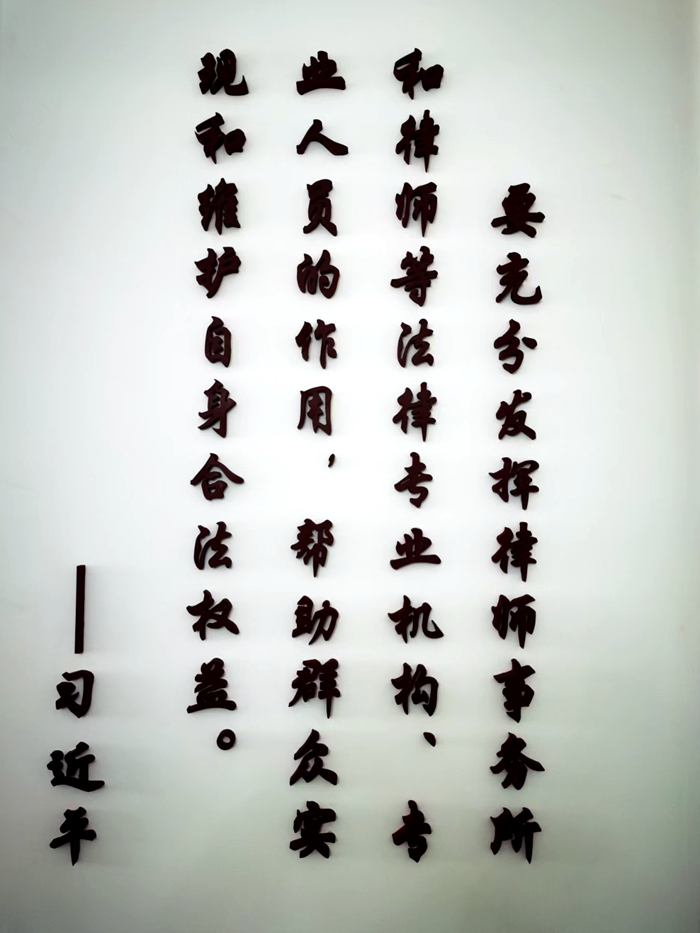 要充分发挥律师事务所
和律师等法律专业机构、专
业人员的作用，帮助群众实
现和维护自身合法权益。
—习近平